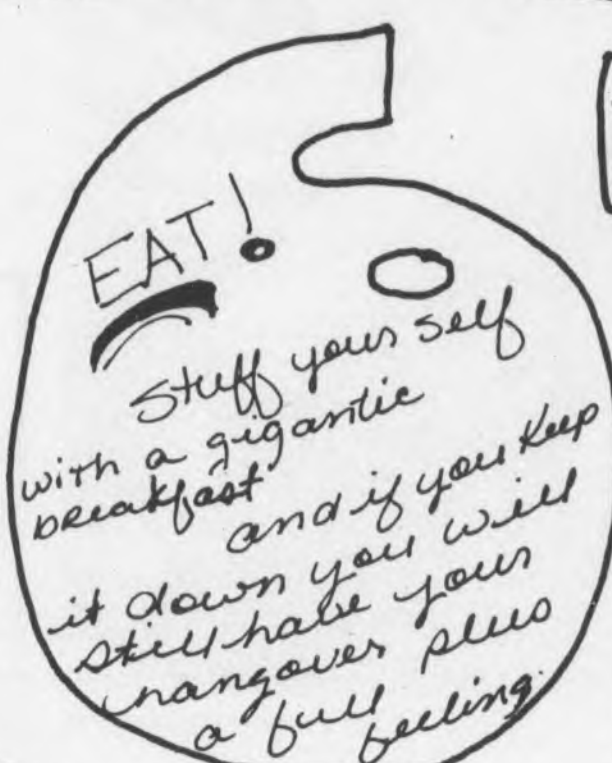 EAT!
Stuff your self
with a gigantic
breakfast
and if you keep
it down you will
still have your
hangover plus
a full
feeling.